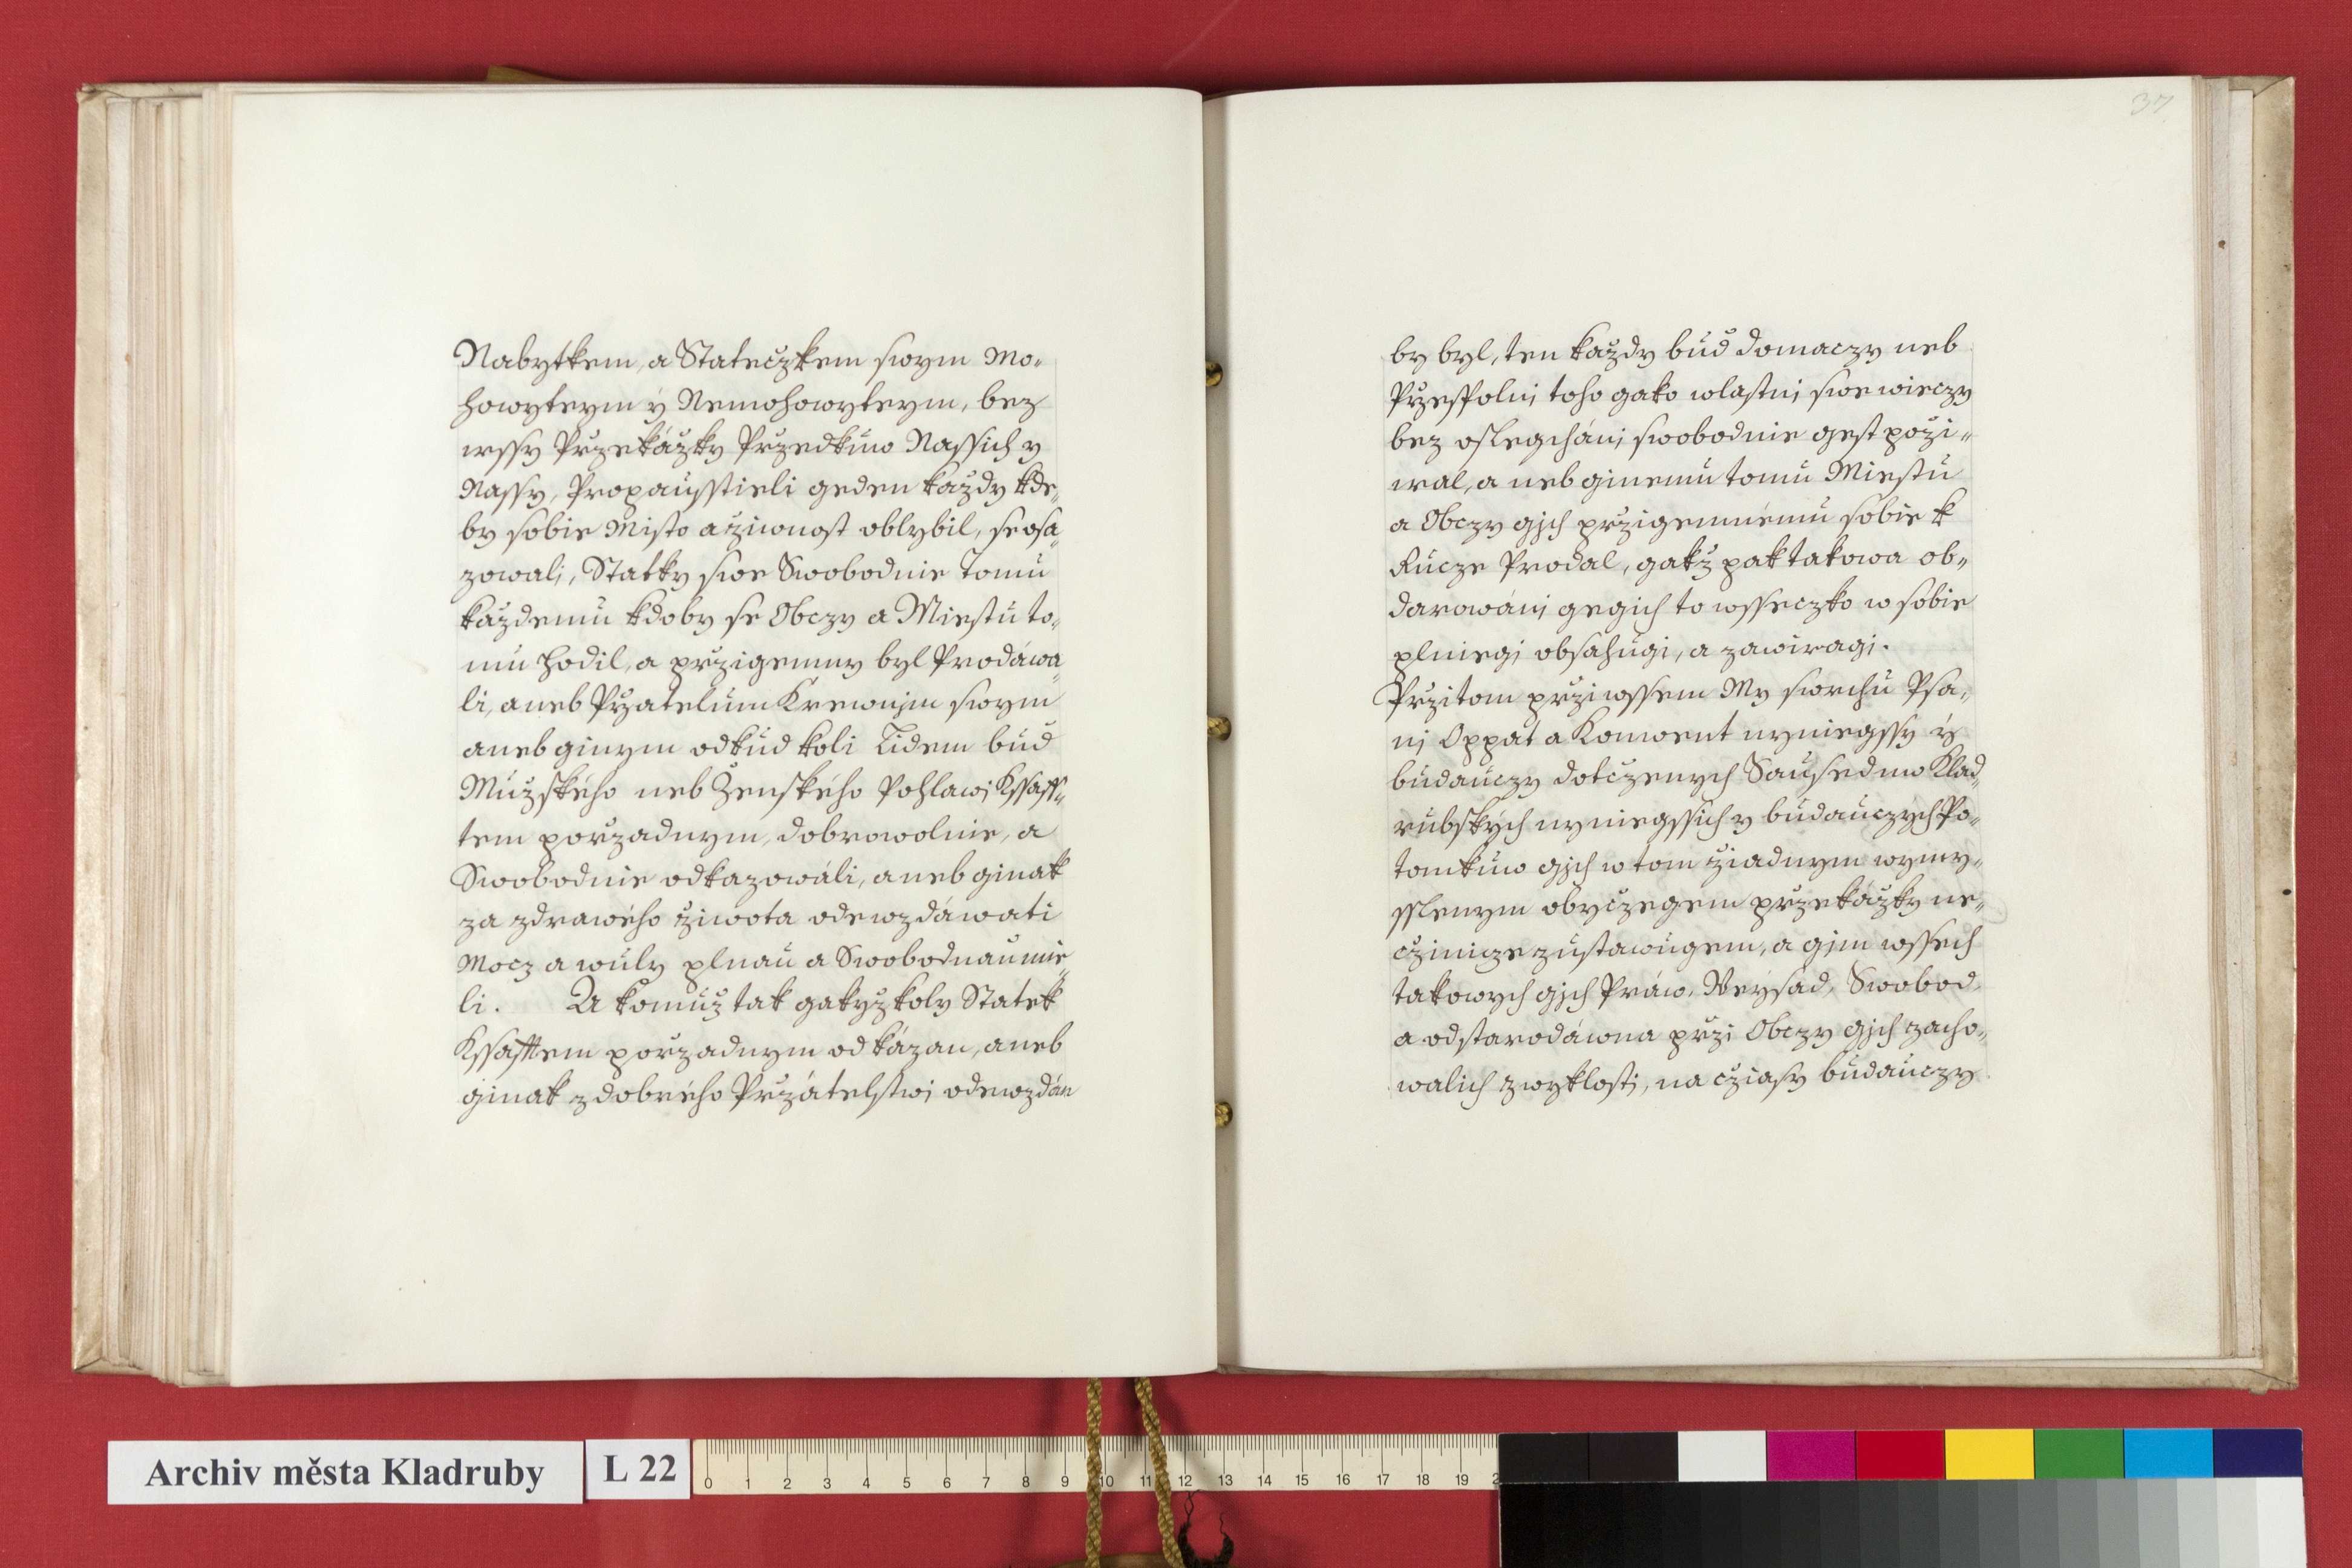 Nabytkem, a Stateczkem swym Mo-
howyteym ÿ Nemohowyteym, bez
wssy Przekážky Przedkuw Nassich y
Nassy, Propaugsstieli geden každy kde-
by sobie Misto a žiwnost oblybil, se osa-
zowali, Statky swe Swobodnie Tomu
každemu kdoby se Obczy a Miestu to-
mu hodil, a przigemny byl Prodáwa-
li, aneb Przatelum Krewnjm swym
aneb ginym odkud koli Lidem bud
Mužského neb Ženského Pohlawj Kssaff-
tem porzadnym, dobrowolnie, a
Swobodnie odkazowáli, aneb ginak
za zdrawého žiwota odewzdáwati
Mocz a wuly plnau a Swobodnau mie-
li. A komuž tak gakyžkoly Statek
Kssafftem porzadnym odkázan, aneb
ginak z dobrého Przátelstwj odewzdán
37
by byl, ten každy bud domaczy neb
Przespolni toho gako wlastnj swe wieczy
bez oslegchánj swobodnie gest poži-
wal, a neb ginemu tomu Miestu
a Obczy gjch przigemnému sobie k
Rucze Prodal, gakž pak takowa ob-
darowánj gegich to wsseczko w sobie
plniegi obsahugi, a zawiragi.
Przitom przi wssem My swrchu Psa-
nj Oppat a Konwent nyniegssy ÿ
budauczy dotczenych Saugseduw Klad-
rubských nyniegssich y budauczých Po-
tomkuw gjch w tom žiadnym wymy-
sslenym obyczegem przekážky ne-
czinicze zustawugem, a gjm wssech
takowych gjch Práw, Weysad, Swobod,
a odstarodáwna przi Obczy gjch zacho-
walich zwyklosti, na cziasy budauczy
Archiv města Kladruby
L 22
0 1 2 3 4 5 6 7 8 9 10 11 12 13 14 15 16 17 18 19 2